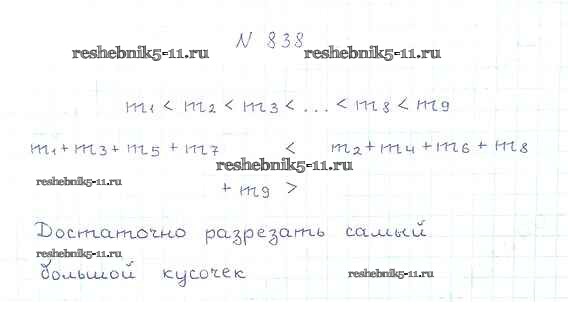 N 838
reshebnik5-11.ru reshebnik5-11.ru
m1 < m2 < m3 < ... < m8 < m9
m1 + m3 + m5 + m7 < m2 + m4 + m6 + m8
reshebnik5-11.ru
reshebnik5-11.ru
+ m9 >
Достаточно разрезать самый
reshebnik5-11.ru
большой кусочек
reshebnik5-11.ru